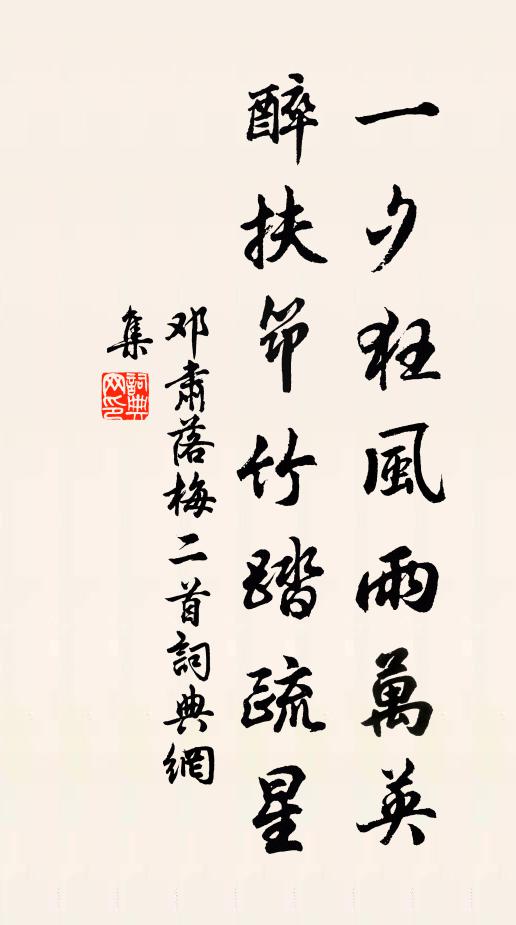 一夕狂風雨萬英
醉扶笻竹踏疏星
邓肅落梅二首詞典網
集
詞典
网印